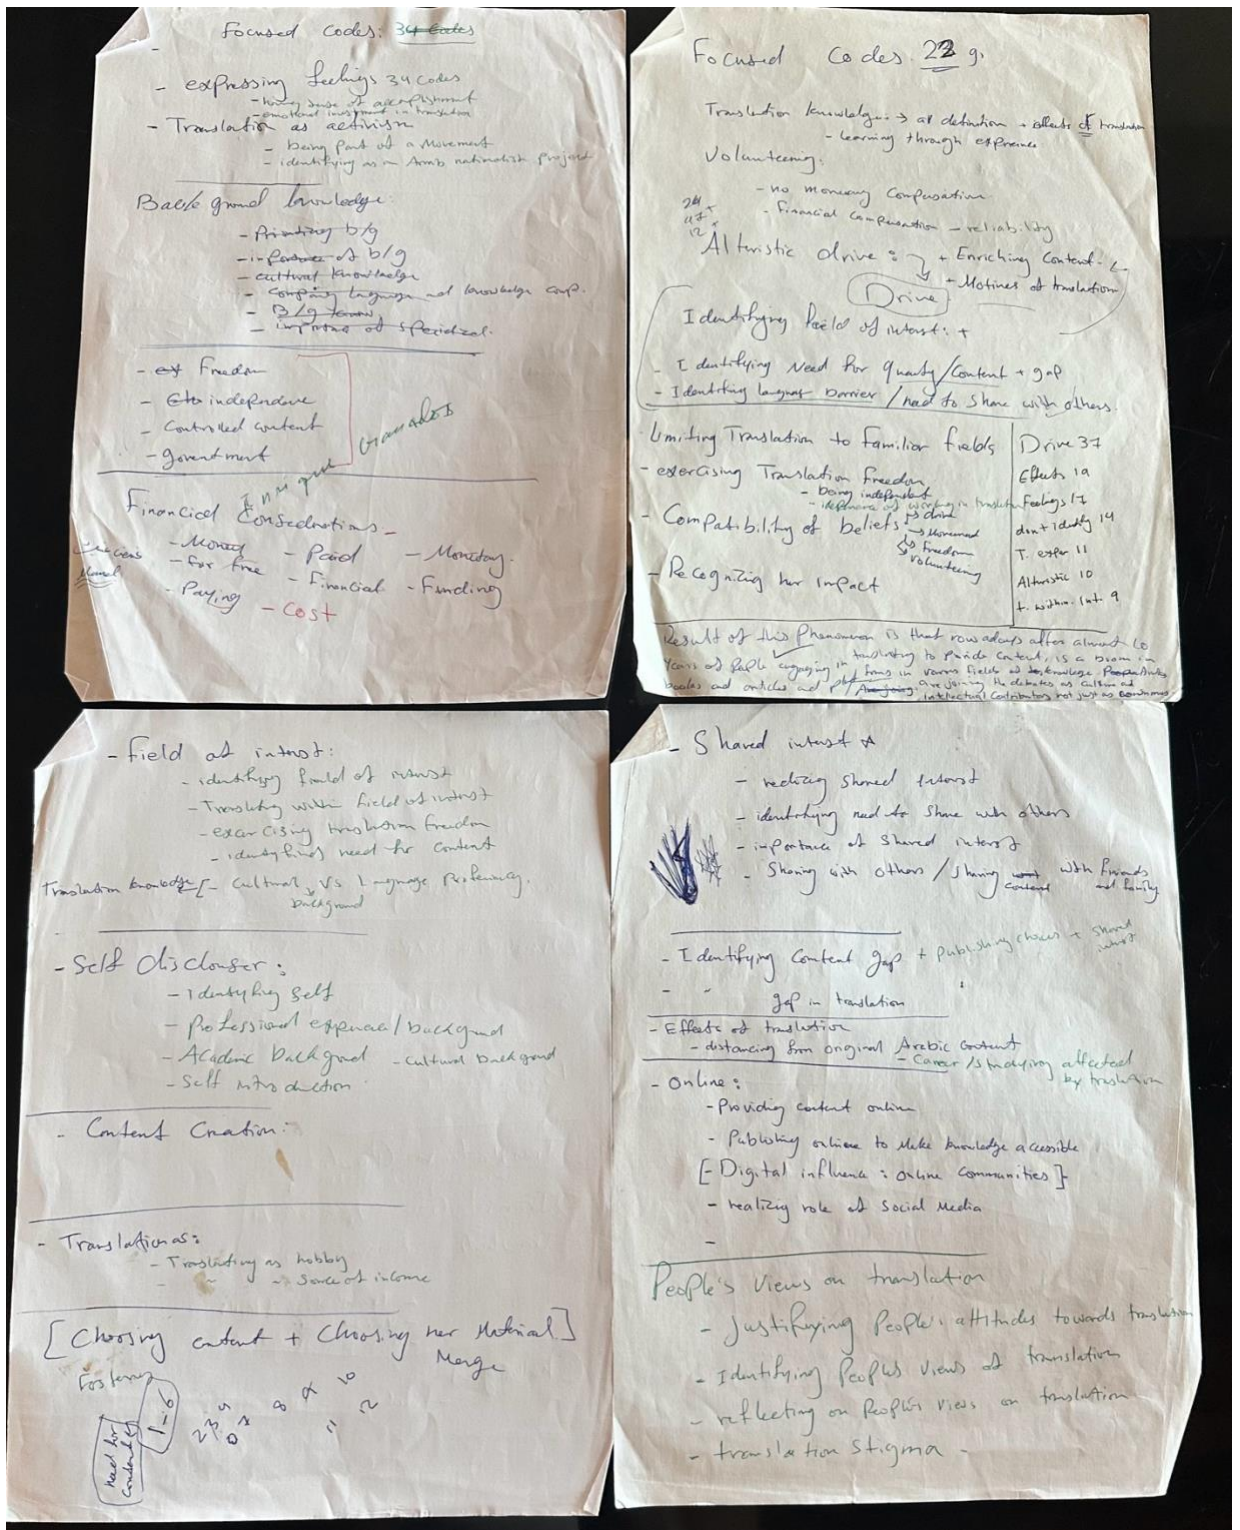 Focused Codes: 34 Codes
- expressing feelings 34 Codes
- having sense of accomplishment
- emotional investment in translation
- Translation as activism
- being part of a Movement
- identifying as an Arab nationalist project
Back ground knowledge:
- Prioritizing b/g
- importance of b/g
- cultural knowledge
- Comparing language and knowledge comp.
- B/g
- of specialized.
- Freedom
- independence
- Controlled content
- government
Financial Considerations -
- Money - Paid - Monetary.
- for free - Financial - Funding
- Paying - Cost
Focused Codes. 22 g.
Translation knowledge → at definition + effects of translation
- learning through experience
Volunteering:
- no monetary compensation
- Financial Compensation - reliability
24 +
47 +
12 +
Altruistic drive: + Enriching Content.
- Motives of translation
Drive
Identifying field of interest: +
- Identifying Need for quality/Content + gap
- Identifying language barrier / need to share with others.
Limiting Translation to Familiar fields
- exercising Translation Freedom
- being independent
- of working in translation
- Compatibility of beliefs → drive
→ Movement
→ Freedom
→ Volunteering
- Recognizing her impact
Drive 37
Effects 19
Feelings 17
don't identify 14
T. exper 11
Altruistic 10
t. within. Int. 9
Result of this Phenomenon is that nowadays after almost 10
years of People engaging in translating to provide Content, is a boom in
books and articles and in various fields of knowledge.
are joining the debates as cultural and
intellectual Contributors not just as
- Field of interest:
- identifying field of interest
- Translating within field of interest
- excercising translation freedom
- identyfing need for content
Translation knowledge ← [- Cultural Vs Language Proficiency.
background
- Self Disclouser:
- Identyfing self
- Professional experience / background
- Academic background - Cultural background
- Self introduction
- Content Creation:
- Translation as:
- Translating as hobby
- " " - Source of income
[Choosing content + Choosing her Material]
Merge
Fostering
1-6
need for
- Shared interest
- realizing shared interest
- identifying need to share with others
- importance of shared interest
- Sharing with others / sharing content with friends and family
- Identifying Content gap + Publishing choices + shared interest
- " gap in translation
- Effects of translation
- distancing from original Arabic Content
- Career / studying affected
by translation
- Online:
- Providing content online
- Publishing online to make knowledge accessible
[- Digital influence: online Communities]
- realizing role of Social Media
-
People's views on translation
- Justifying People's attitudes towards translation
- Identifying People's views of translation
- reflecting on People's views on translation
- translation Stigma -